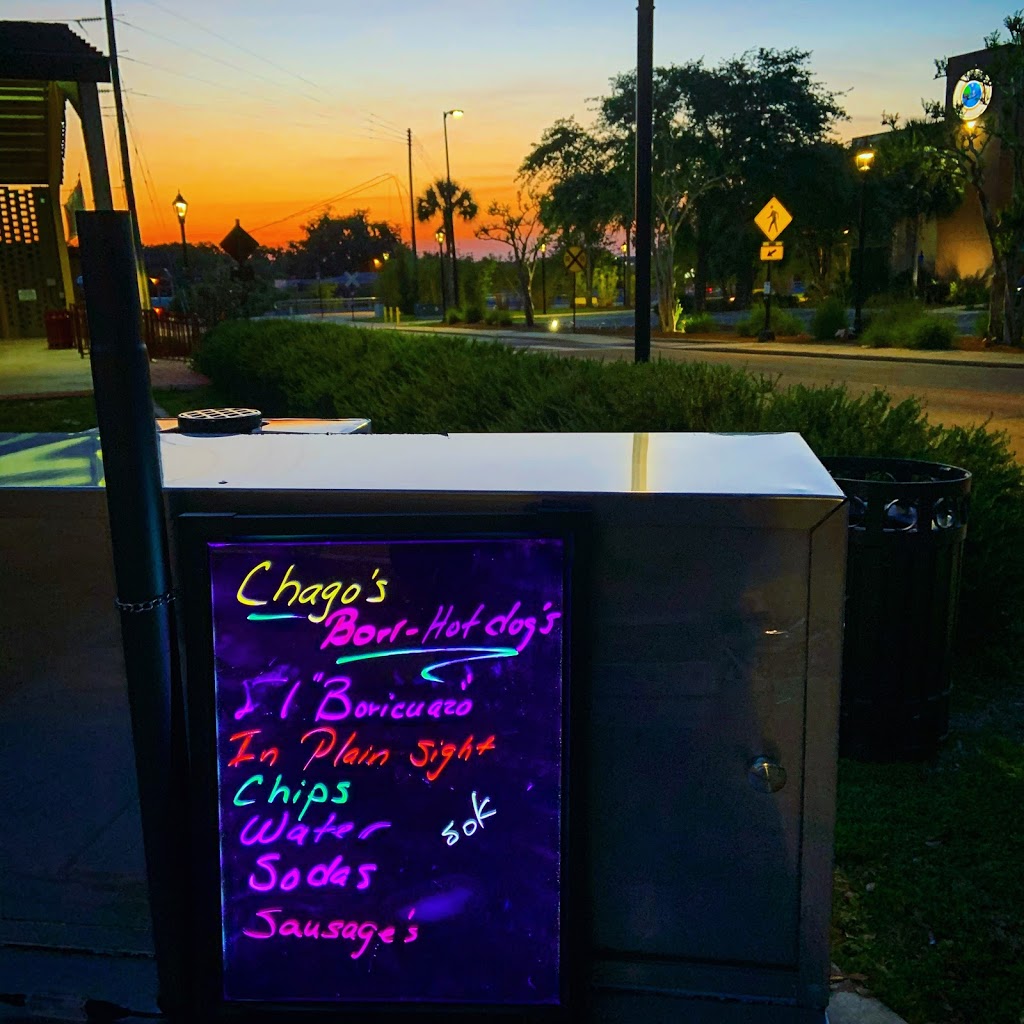 Chago's
Bori-Hot dog's
El "Boricuazo"
In Plain Sight
Chips
Water
Sok
Sodas
Sausage's